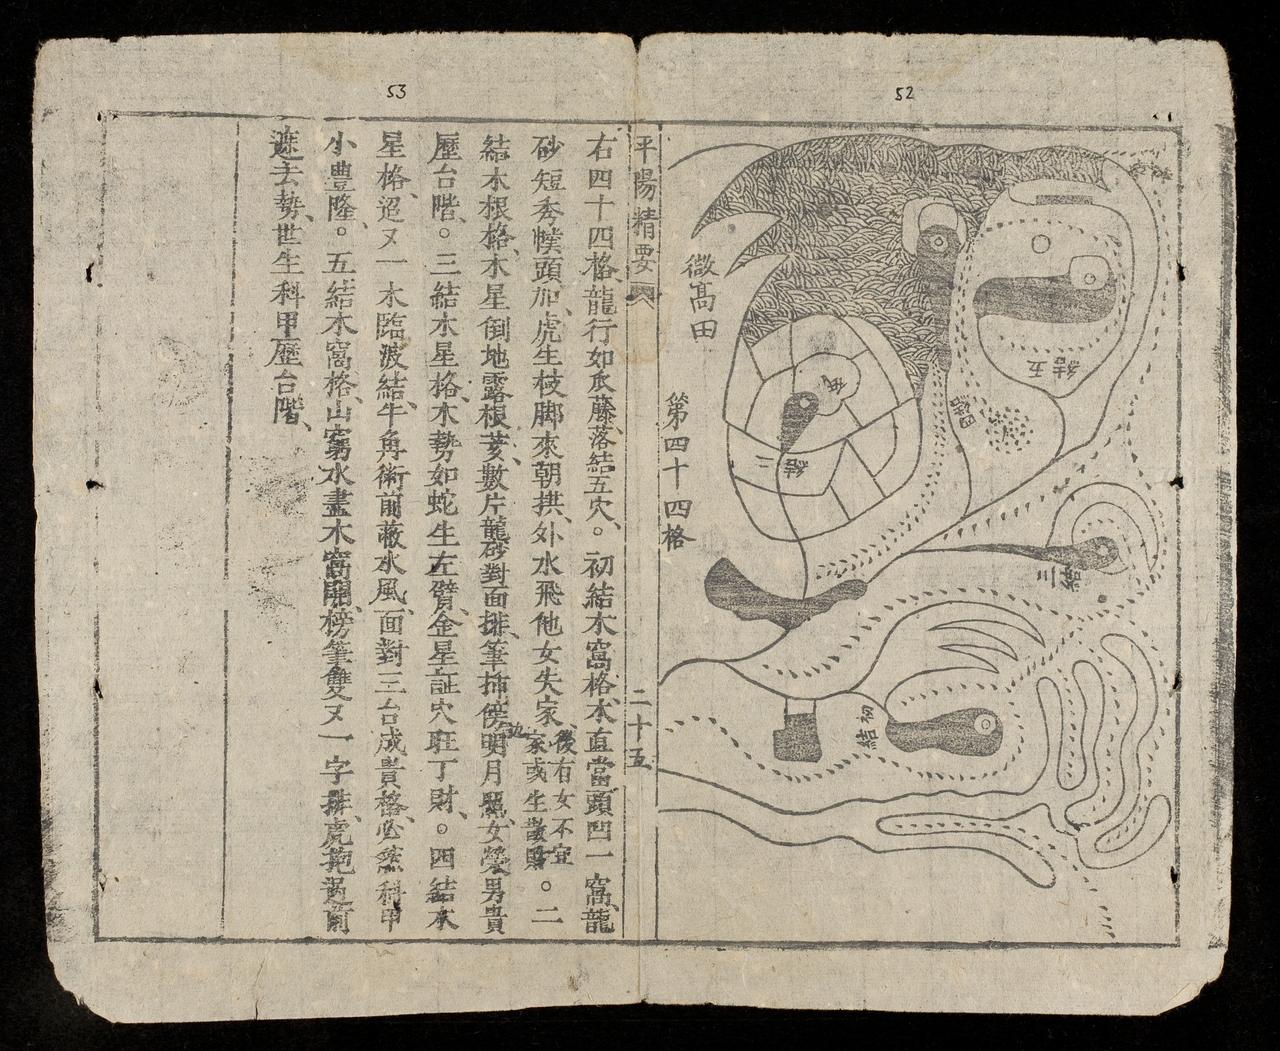 52
微高田
第四十四格
結五
結四
結二
結三
結初
平陽精要
二十五
53
右四十四格、龍行如瓜藤、落結五穴。初結木窩格、木直當頭凹一窩、龍
砂短秀幞頭加、虎生枝脚來朝拱、外水飛他女失家、後右女不宜家或生散財。二
結木根格、木星倒地露根荄、數片龍砂對面排、筆插傍明月照、女榮男貴
歷台階。三結木星格、木勢如蛇生左臂、金星証穴旺丁財。四結木
星格、迢又一木臨波結、牛角術前蔽水風、面對三台成貴格、必然科甲
小豊隆。五結木窩格、山窮水盡木窩開、榜筆雙又一字排、虎抱過前
遮去勢、世生科甲歷台階、